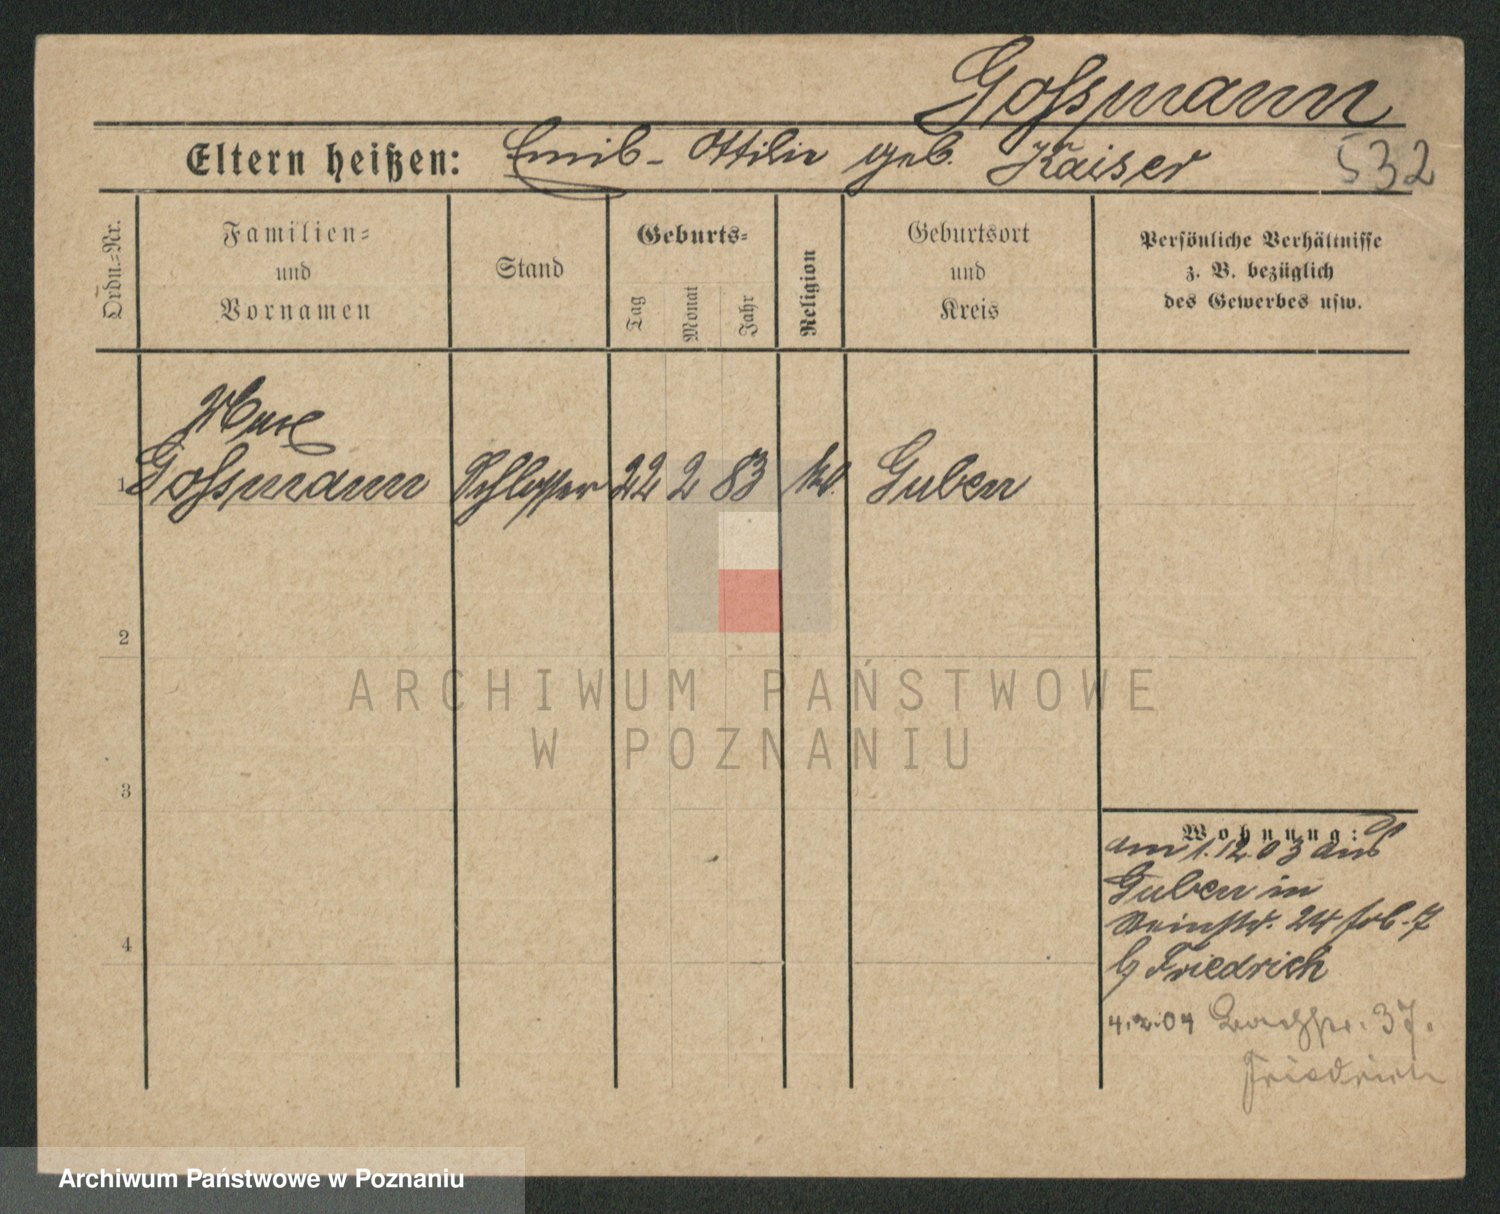 Goßmann
Eltern heißen: Emil - Ottilie geb. Kaiser 532
Ordn.-Nr.
Familien-
und
Vornamen
Stand
Geburts-
Tag
Monat
Jahr
Religion
Geburtsort
und
Kreis
Persönliche Verhältnisse
z. B. bezüglich
des Gewerbes usw.
Max
1 Goßmann Schlosser 22 2 83 Guben
2
ARCHIWUM PAŃSTWOWE
W POZNANIU
3
4
Wohnung:
am 1.12.03 aus
Guben in
24
b/ Friedrich
4.2.04 37.
Friedrich
Archiwum Państwowe w Poznaniu